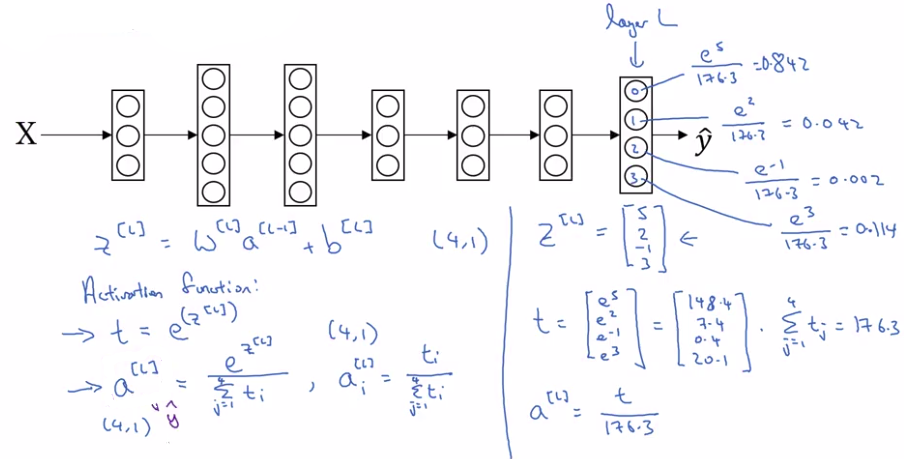 layer L
X
0
1
2
3
ŷ
e^5/176.3 = 0.842
e^2/176.3 = 0.042
e^-1/176.3 = 0.002
e^3/176.3 = 0.114
z^[L] = W^[L] a^[L-1] + b^[L] (4,1)
Activation function:
→ t = e^(z^[L]) (4,1)
→ a^[L] = e^z^[L] / ∑_{j=1}^{4} t_i , a_i^[L] = t_i / ∑_{j=1}^{4} t_i
(4,1) ŷ
z^[L] = [5 2 -1 3] ←
t = [e^5 e^2 e^-1 e^3] = [148.4 7.4 0.4 20.1] . ∑_{j=1}^{4} t_j = 176.3
a^[L] = t/176.3